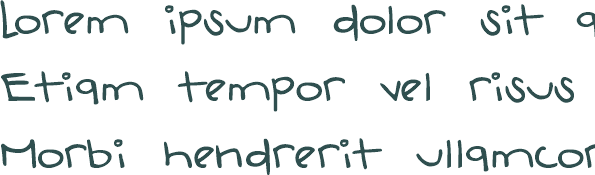 Lorem ipsum dolor sit a
Etiam tempor vel risus
Morbi hendrerit ullamcor